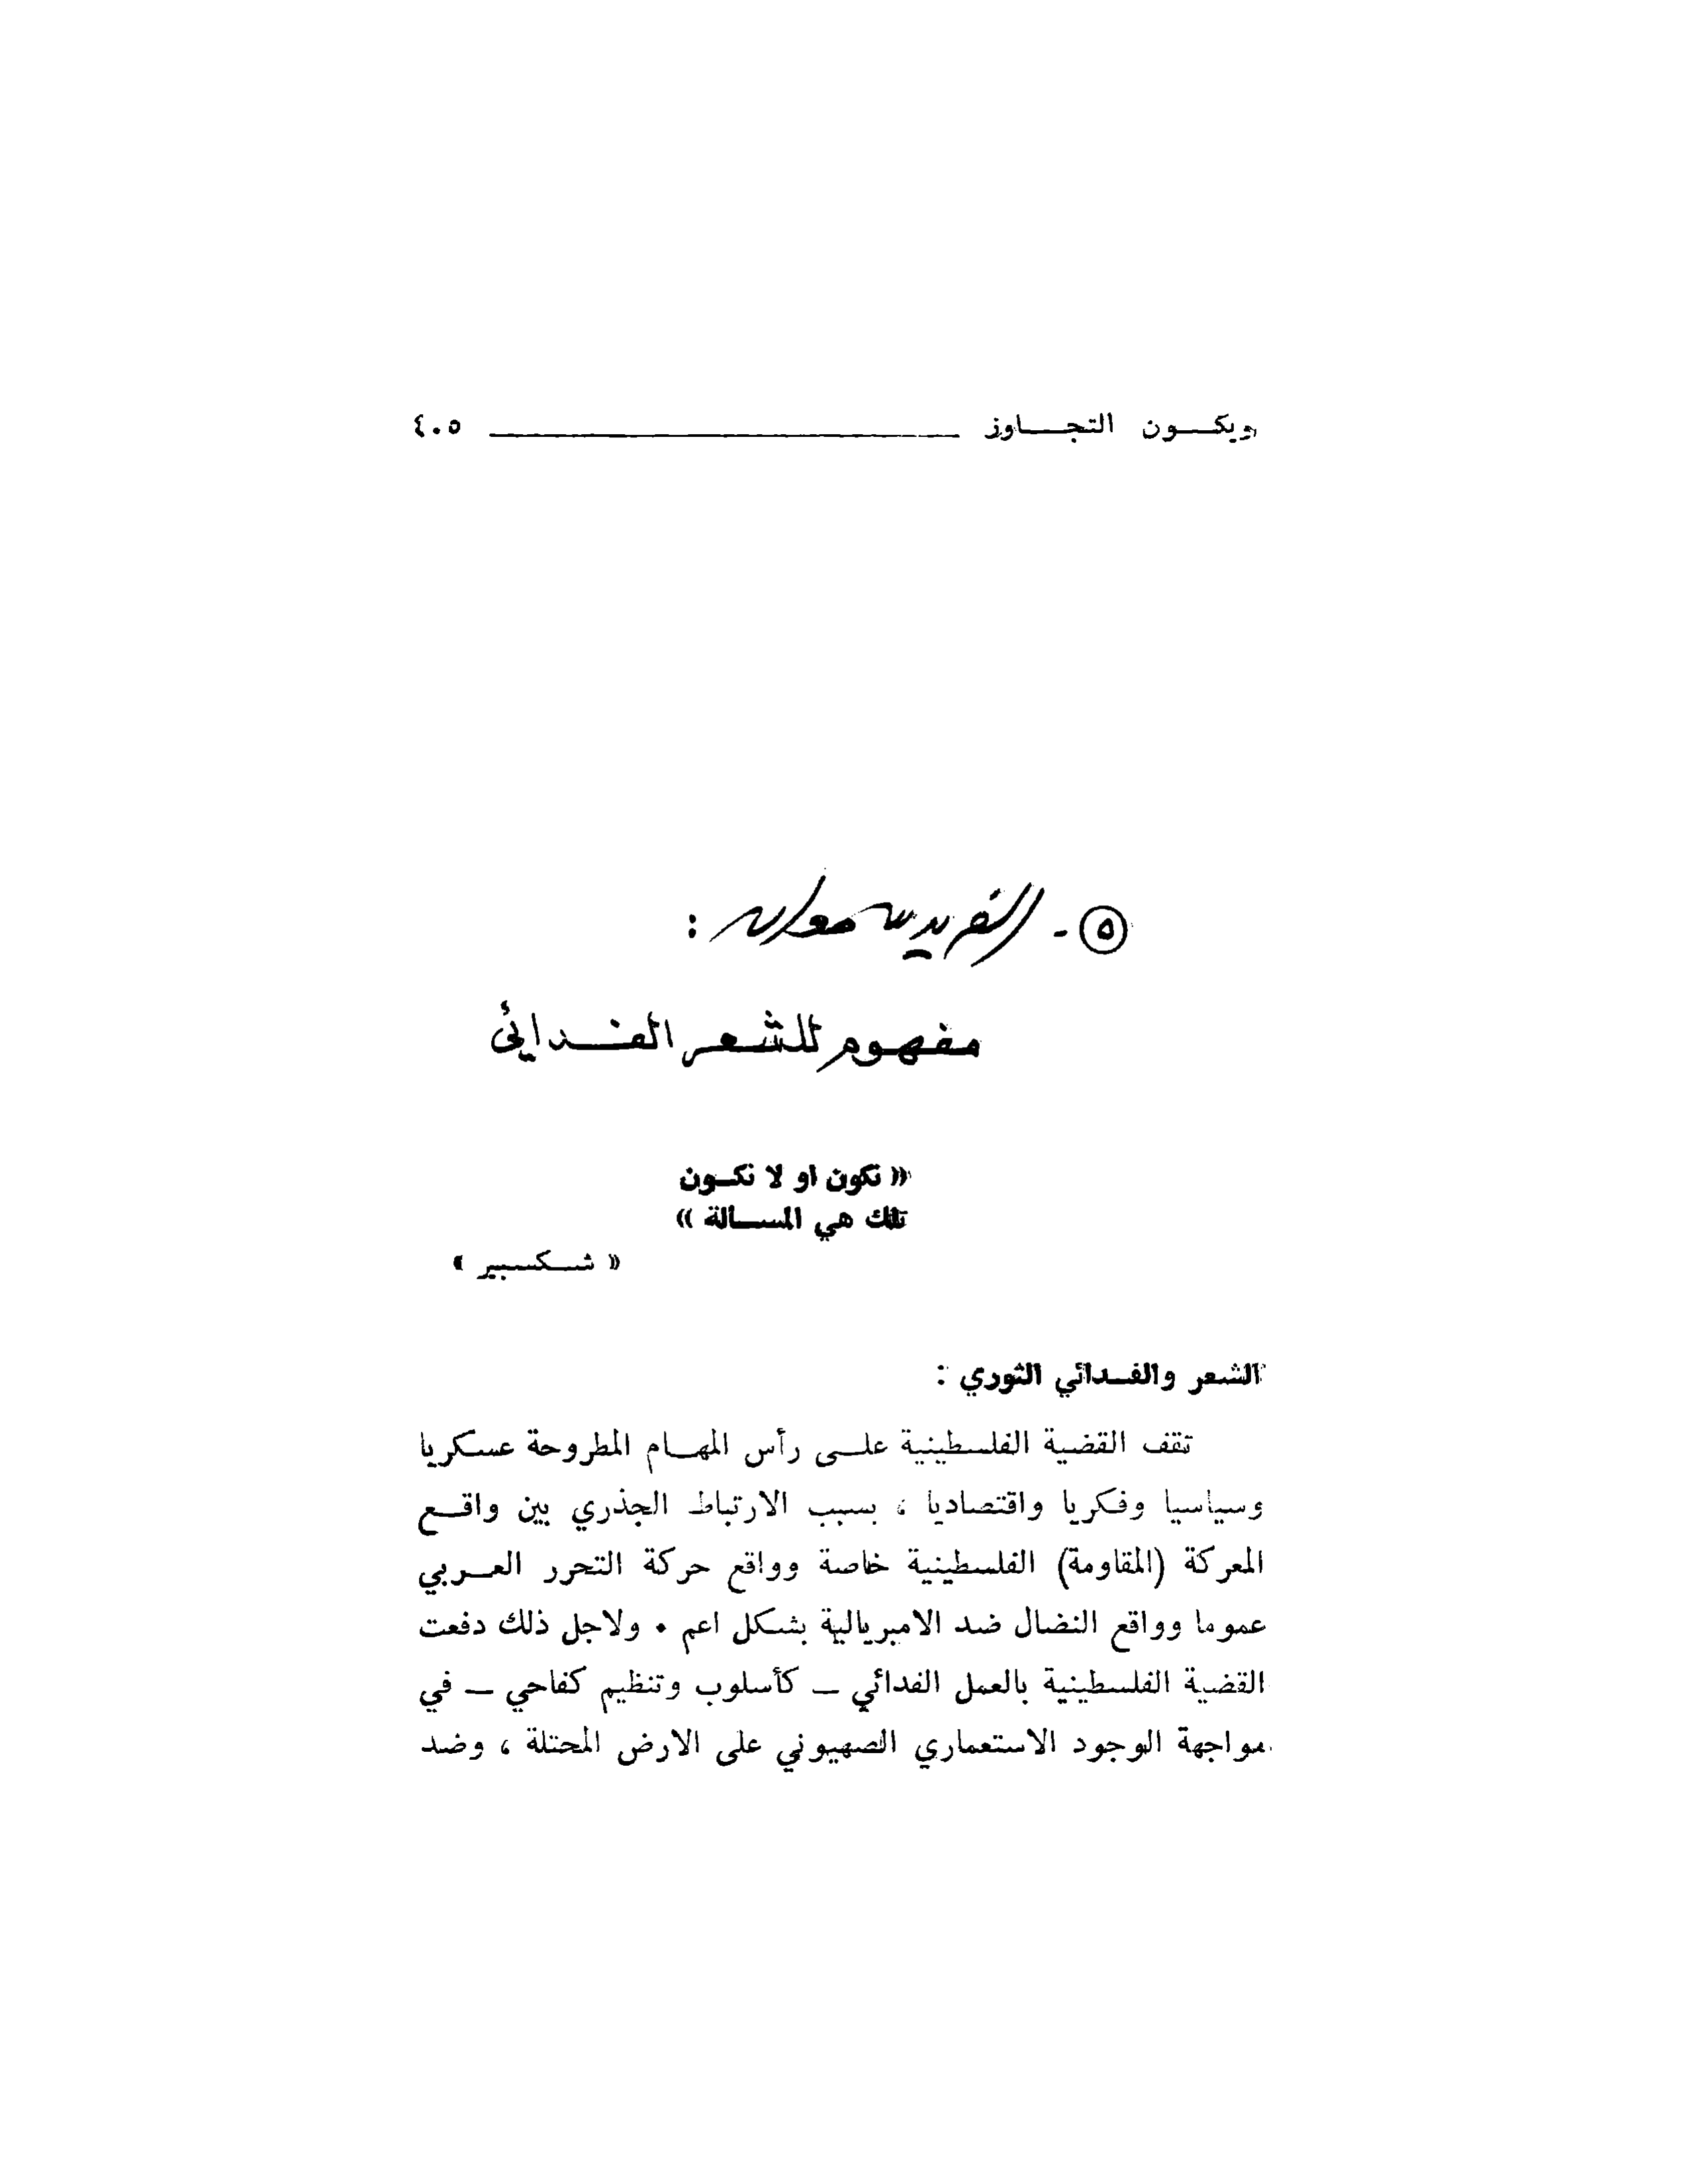 ويكون التجاوز ٤٠٥
٥ - الفريد سمعان :
مفهوم للشعر الفدائي
« نكون او لا نكون
تلك هي المسالة »
« شكسبير »
الشعر والفدائي الثوري :
تقف القضية الفلسطينية على رأس المهام المطروحة عسكريا
وسياسيا وفكريا واقتصاديا ، بسبب الارتباط الجذري بين واقع
المعركة (المقاومة) الفلسطينية خاصة وواقع حركة التحرر العربي
عموما وواقع النضال ضد الامبريالية بشكل اعم . ولاجل ذلك دفعت
القضية الفلسطينية بالعمل الفدائي – كأسلوب وتنظيم كفاحي – في
مواجهة الوجود الاستعماري الصهيوني على الارض المحتلة ، وضد